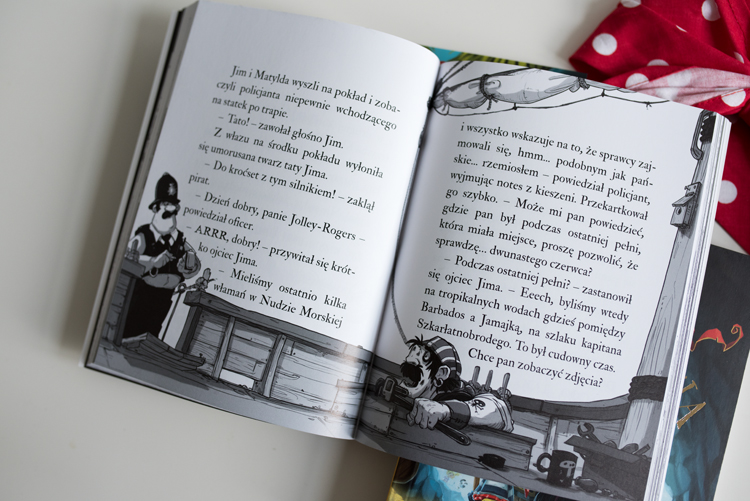 Jim i Matylda wyszli na pokład i zoba-
czyli policjanta niepewnie wchodzącego
na statek po trapie.
– Tato! – zawołał głośno Jim.
Z włazu na środku pokładu wyłoniła
się umorusana twarz taty Jima.
– Do kroćset z tym silnikiem! – zaklął
pirat.
– Dzień dobry, panie Jolley-Rogers –
powiedział oficer.
– ARRR, dobry! – przywitał się krót-
ko ojciec Jima.
– Mieliśmy ostatnio kilka
włamań w Nudzie Morskiej
i wszystko wskazuje na to, że sprawcy zaj-
mowali się, hmm... podobnym jak pań-
skie... rzemiosłem – powiedział policjant,
wyjmując notes z kieszeni. Przekartkował
go szybko. – Może mi pan powiedzieć,
gdzie pan był podczas ostatniej pełni,
która miała miejsce, proszę pozwolić, że
sprawdzę... dwunastego czerwca?
– Podczas ostatniej pełni? – zastanowił
się ojciec Jima. – Eeech, byliśmy wtedy
na tropikalnych wodach gdzieś pomiędzy
Barbados a Jamajką, na szlaku kapitana
Szkarłatnobrodego. To był cudowny czas.
Chce pan zobaczyć zdjęcia?